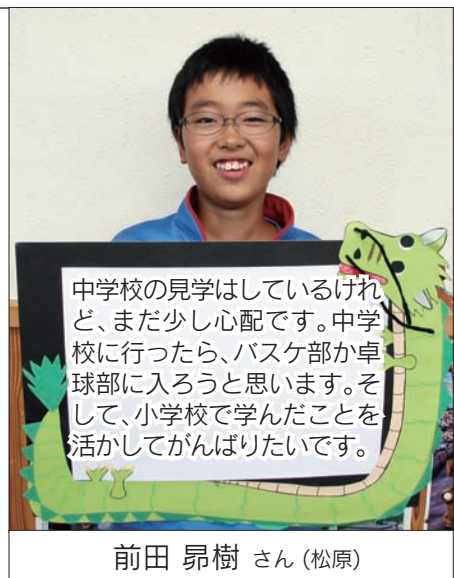 中学校の見学はしているけれ
ど、まだ少し心配です。中学
校に行ったら、バスケ部か卓
球部に入ろうと思います。そ
して、小学校で学んだことを
活かしてがんばりたいです。
前田 昴樹 さん (松原)